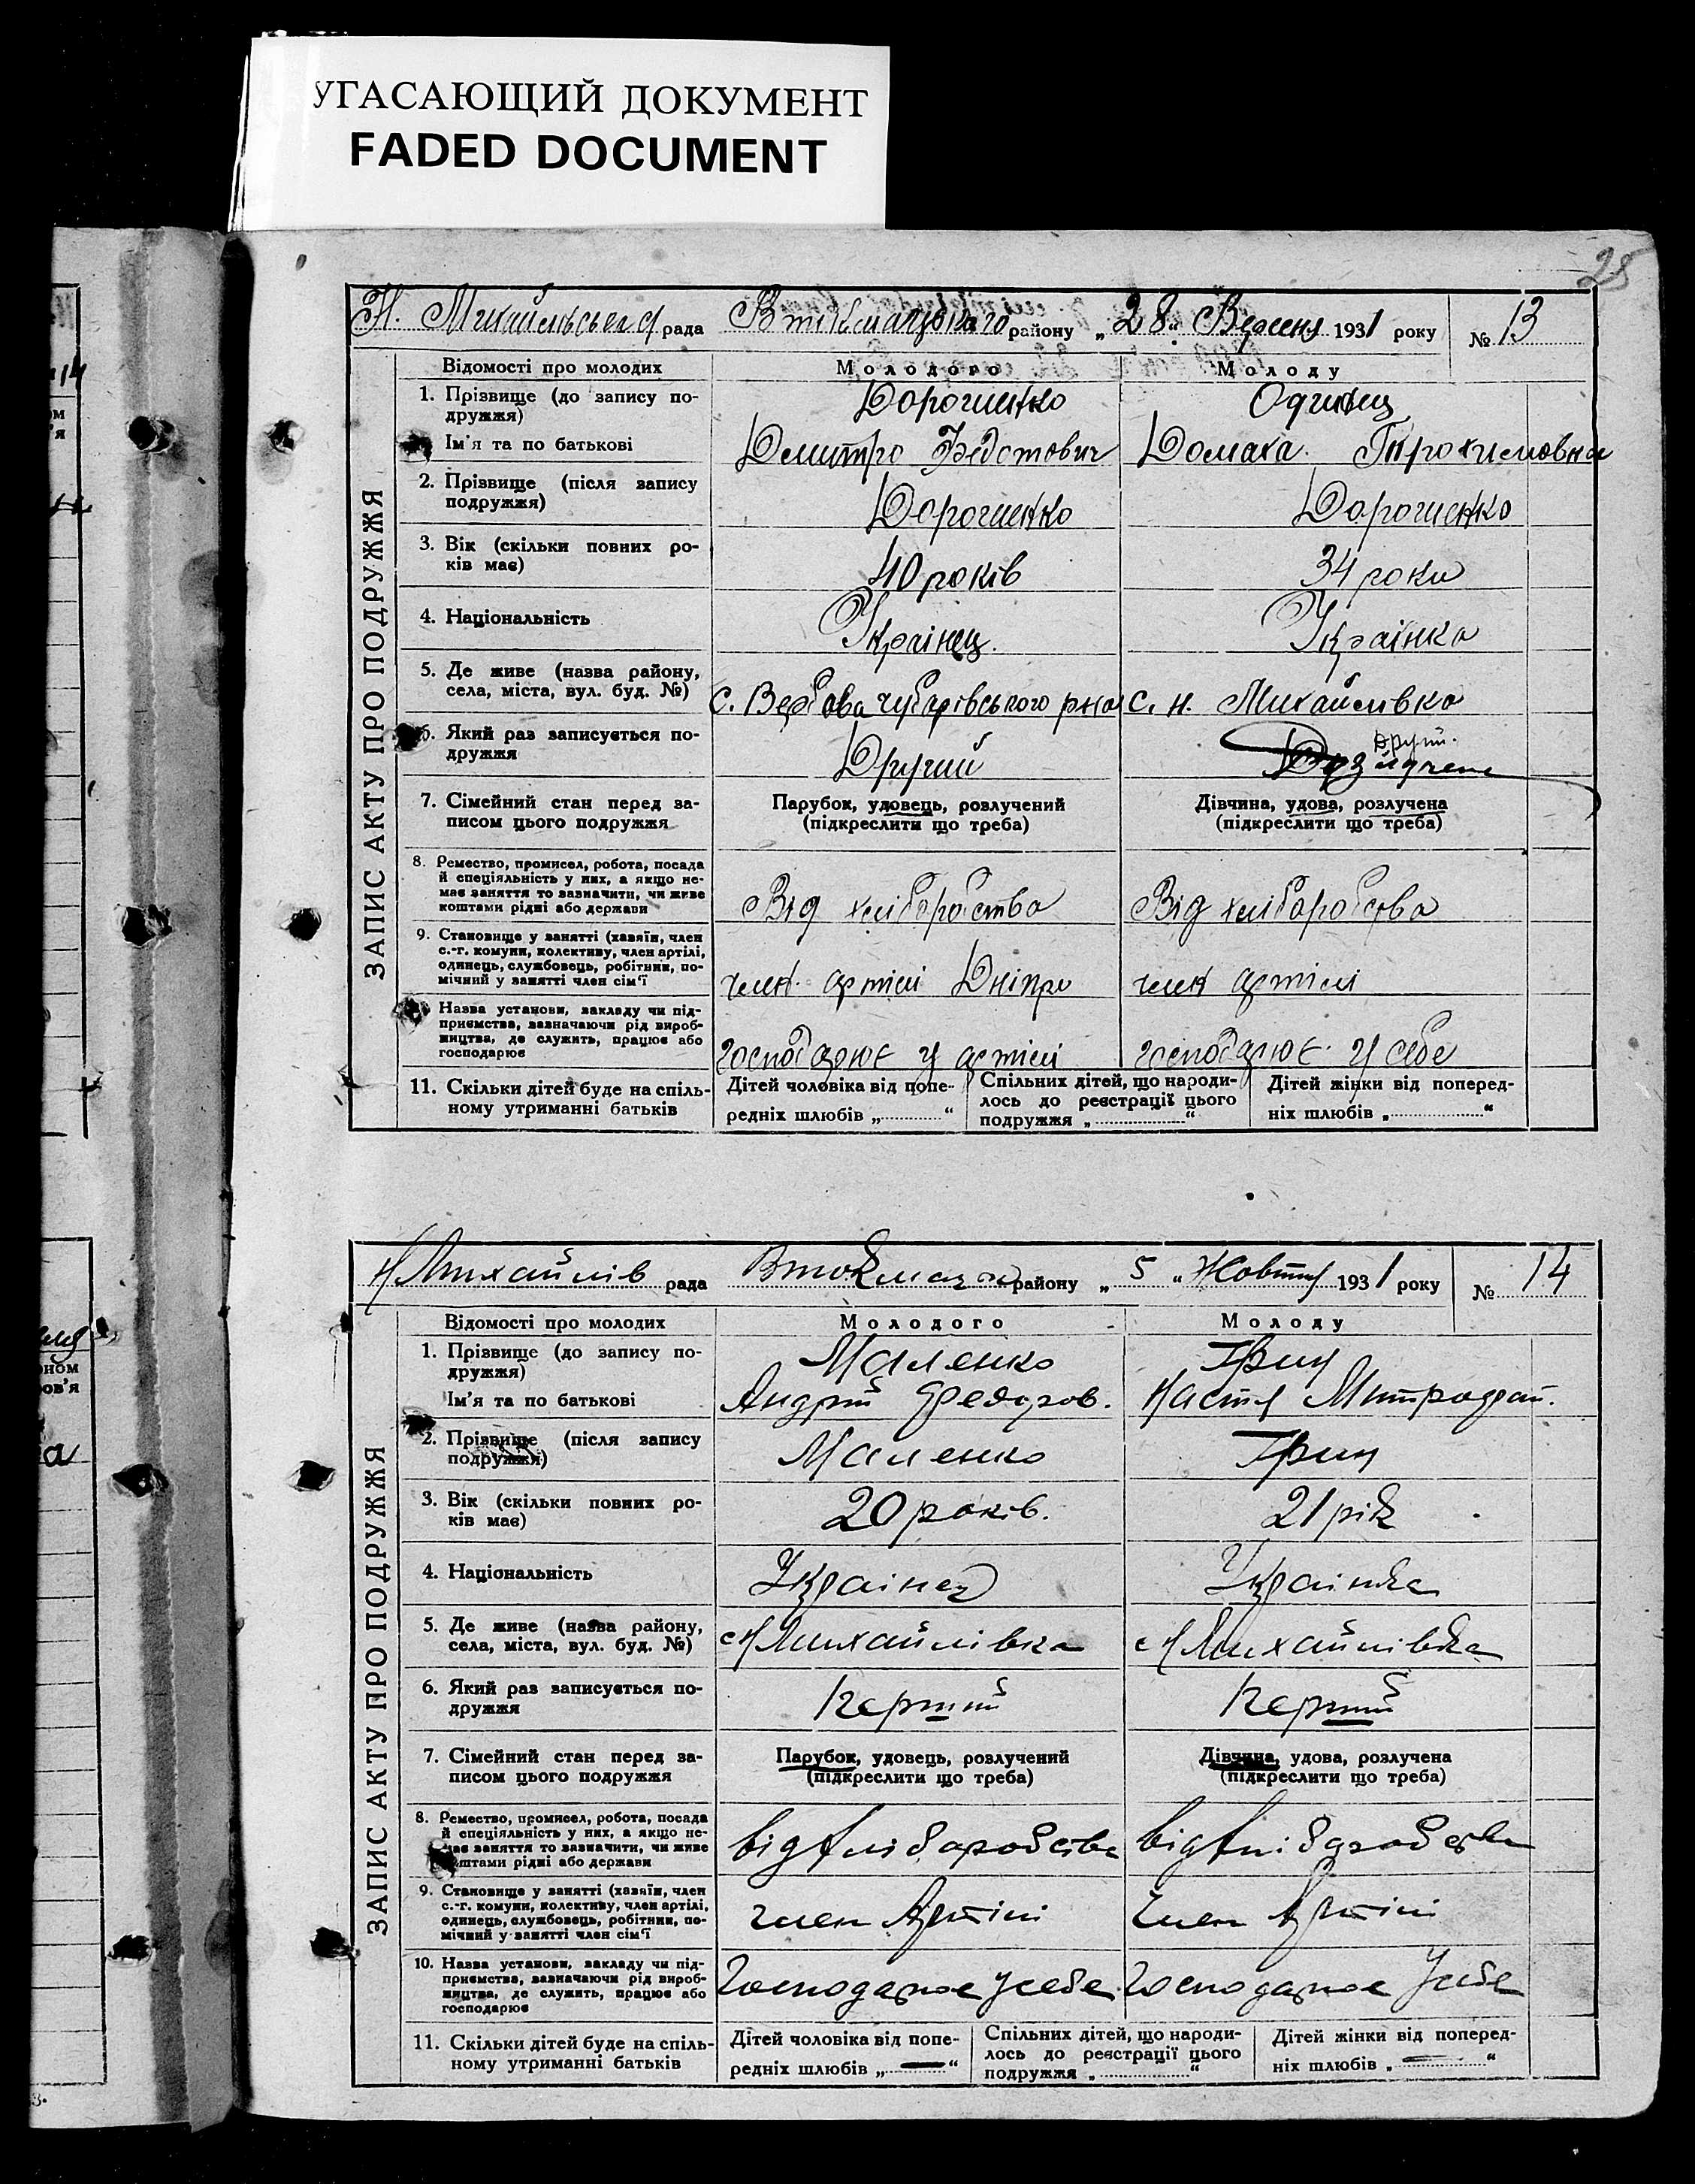 УГАСАЮЩИЙ ДОКУМЕНТ
FADED DOCUMENT
25
Н. Михайлівська рада Втокмацького району „28“ Вересня 1931 року № 13
ЗАПИС АКТУ ПРО ПОДРУЖЖЯ
Відомості про молодих Молодого Молоду
1. Прізвище (до запису по-
дружжя) Дорошенко Одинец
Ім'я та по батькові Дмитро Федотович Домаха Трохимовна
2. Прізвище (після запису
подружжя) Дорошенко Дорошенко
3. Вік (скільки повних ро-
ків має) 40 років 34 роки
4. Національність Українец. Українка
5. Де живе (назва району,
села, міста, вул. буд. №) С. Вербова Чубарівського рна С. Н. Михайлівка
6. Який раз записується по-
дружжя Другий Другий.
7. Сімейний стан перед за-
писом цього подружжя
Парубок, удовець, розлучений
(підкреслити що треба)
Дівчина, удова, розлучена
(підкреслити що треба)
8. Ремество, промисел, робота, посада
й спеціяльність у них, а якщо не-
має заняття то зазначити, чи живе
коштами рідні або держави
Від хліборобства Від хліборобства
9. Становище у занятті (хазяїн, член
с.-г. комуни, колективу, член артілі,
одинець, службовець, робітник, по-
мічний у занятті член сім'ї
член артілі Дніпро член артілі
Назва установи, закладу чи під-
приємства, зазначаючи рід вироб-
ництва, де служить, працює або
господарює
господарює у артілі господарює у себе
11. Скільки дітей буде на спіль-
ному утриманні батьків
Дітей чоловіка від попе-
редніх шлюбів „ “
Спільних дітей, що народи-
лось до реєстрації цього
подружжя „ “
Дітей жінки від поперед-
ніх шлюбів „ “
Н Михайлів рада Втокмацьк району „5“ Жовтня 1931 року № 14
ЗАПИС АКТУ ПРО ПОДРУЖЖЯ
Відомості про молодих Молодого Молоду
1. Прізвище (до запису по-
дружжя) Маленко
Ім'я та по батькові Андрій Федоров. Настя Митрофан.
2. Прізвище (після запису
подружжя) Маленко
3. Вік (скільки повних ро-
ків має) 20 років. 21 рік
4. Національність Українец Українка
5. Де живе (назва району,
села, міста, вул. буд. №) с Н Михайлівка с Н Михайлівка
6. Який раз записується по-
дружжя Перший Перший
7. Сімейний стан перед за-
писом цього подружжя
Парубок, удовець, розлучений
(підкреслити що треба)
Дівчина, удова, розлучена
(підкреслити що треба)
8. Ремество, промисел, робота, посада
й спеціяльність у них, а якщо не-
має заняття то зазначити, чи живе
коштами рідні або держави
від хліборобства від хліборобства
9. Становище у занятті (хазяїн, член
с.-г. комуни, колективу, член артілі,
одинець, службовець, робітник, по-
мічний у занятті член сім'ї
член Артілі член Артілі
10. Назва установи, закладу чи під-
приємства, зазначаючи рід вироб-
ництва, де служить, працює або
господарює
Господарює у себе. Господарює У себе
11. Скільки дітей буде на спіль-
ному утриманні батьків
Дітей чоловіка від попе-
редніх шлюбів „—“
Спільних дітей, що народи-
лось до реєстрації цього
подружжя „ “
Дітей жінки від поперед-
ніх шлюбів „—“